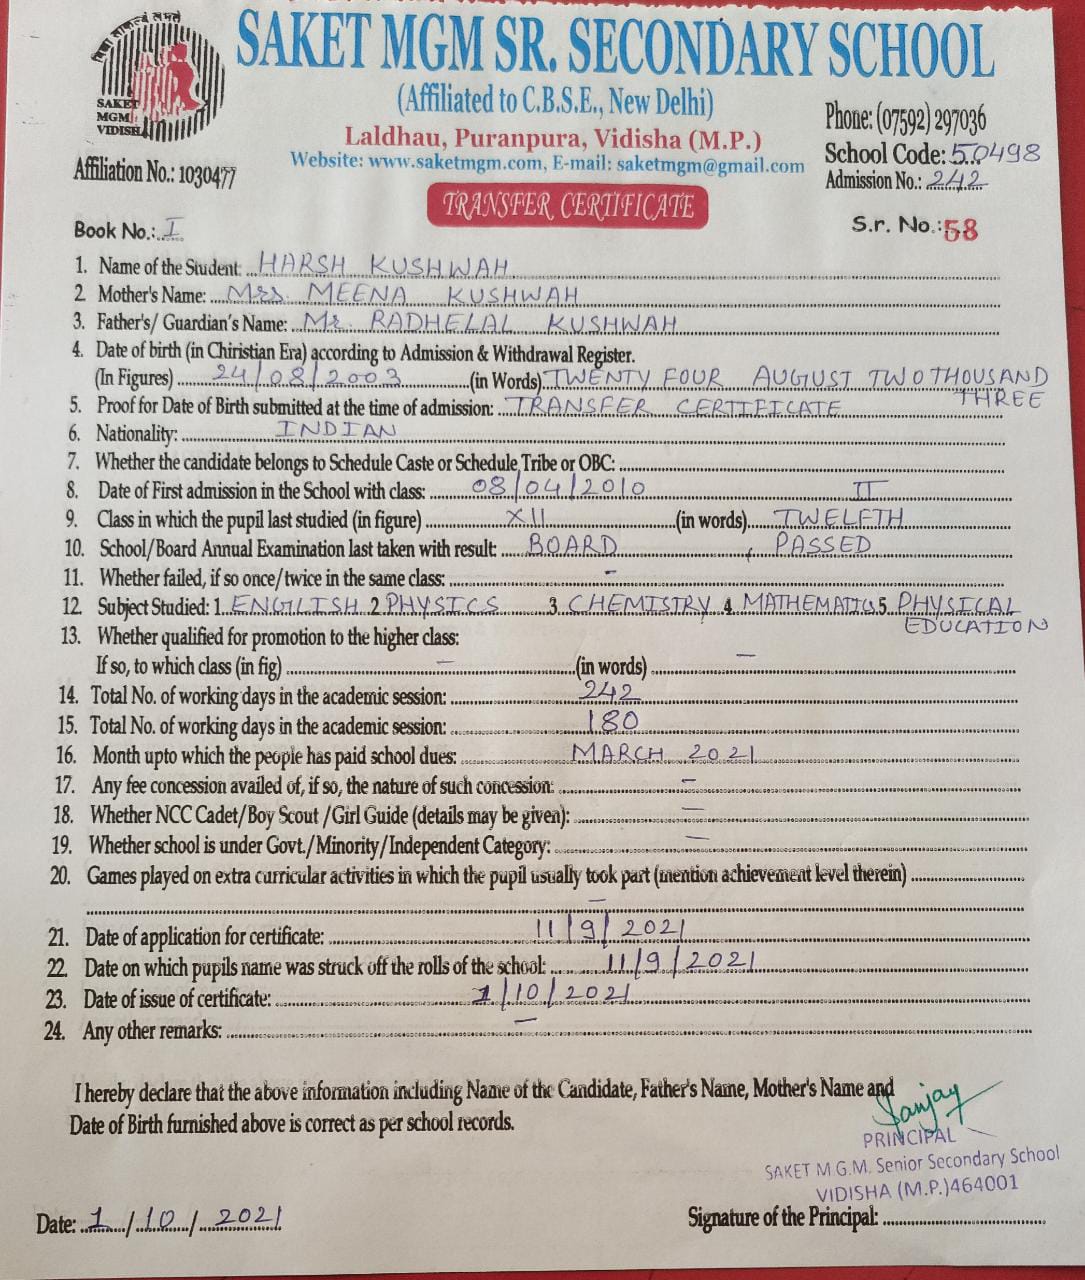 SAKET MGM SR. SECONDARY SCHOOL
(Affiliated to C.B.S.E., New Delhi)
Laldhau, Puranpura, Vidisha (M.P.)
Website: www.saketmgm.com, E-mail: saketmgm@gmail.com
SAKET
MGM
VIDISHA
Affiliation No.: 1030477
Phone: (07592) 297036
School Code: 50498
Admission No.: 242
TRANSFER CERTIFICATE
Book No.: I
S.r. No.: 58
1. Name of the Student: HARSH KUSHWAH
2. Mother's Name: Mrs. MEENA KUSHWAH
3. Father's/ Guardian's Name: Mr. RADHELAL KUSHWAH
4. Date of birth (in Chiristian Era) according to Admission & Withdrawal Register.
(In Figures) 24/08/2003 (in Words) TWENTY FOUR AUGUST TWO THOUSAND
THREE
5. Proof for Date of Birth submitted at the time of admission: TRANSFER CERTIFICATE
6. Nationality: INDIAN
7. Whether the candidate belongs to Schedule Caste or Schedule Tribe or OBC:
8. Date of First admission in the School with class: 08/04/2010 II
9. Class in which the pupil last studied (in figure) XII (in words) TWELFTH
10. School/Board Annual Examination last taken with result: BOARD, PASSED
11. Whether failed, if so once/twice in the same class: -
12. Subject Studied: 1. ENGLISH 2 PHYSICS 3. CHEMISTRY 4. MATHEMATICS 5. PHYSICAL
EDUCATION
13. Whether qualified for promotion to the higher class:
If so, to which class (in fig) - (in words) -
14. Total No. of working days in the academic session: 242
15. Total No. of working days in the academic session: 180
16. Month upto which the people has paid school dues: MARCH 2021
17. Any fee concession availed of, if so, the nature of such concession: -
18. Whether NCC Cadet/Boy Scout /Girl Guide (details may be given): -
19. Whether school is under Govt./Minority/Independent Category: -
20. Games played on extra curricular activities in which the pupil usually took part (mention achievement level therein)
-
21. Date of application for certificate: 11/9/2021
22. Date on which pupils name was struck off the rolls of the school: 11/9/2021
23. Date of issue of certificate: 1/10/2021
24. Any other remarks: -
I hereby declare that the above information including Name of the Candidate, Father's Name, Mother's Name and
Date of Birth furnished above is correct as per school records.
Sanjay
PRINCIPAL
SAKET M.G.M. Senior Secondary School
VIDISHA (M.P.)464001
Date: 1/10/2021
Signature of the Principal: